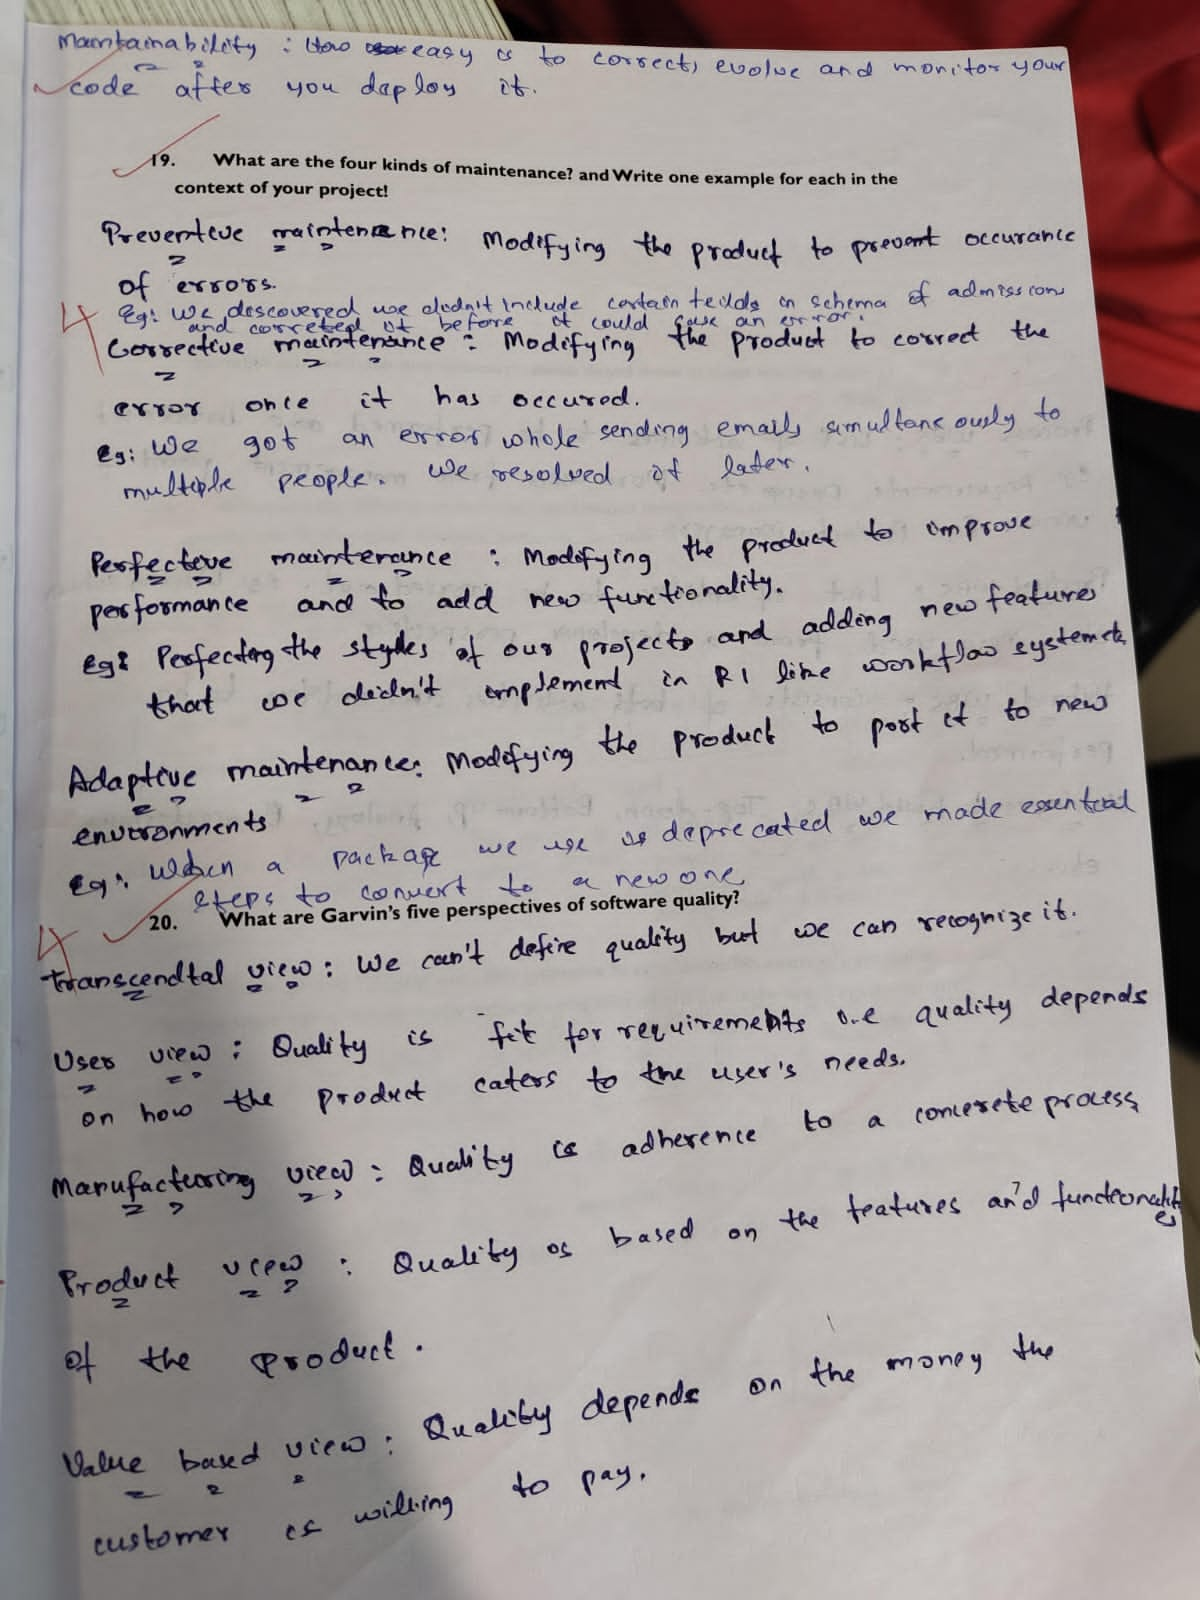 Maintainability : How easy is to correct, evolve and monitor your
code after you deploy it.
19. What are the four kinds of maintenance? and Write one example for each in the
context of your project!
Preventive maintenance: Modifying the product to prevent occurance
of errors.
4
Eg: We discovered we didn't include certain feilds in schema of admissions
and correted it before it could cause an error.
Corrective maintenance : Modifying the product to correct the
error once it has occured.
Eg: We got an error while sending emails simultaneously to
multiple people. We resolved it later.
Perfective maintenance : Modifying the product to improve
performance and to add new functionality.
Eg: Perfecting the styles of our projects and adding new features
that we didn't implement in R1 like workflow system etc
Adaptive maintenance: Modifying the product to port it to new
environments
Eg: When a package we use is deprecated we made essential
steps to convert to a new one
20. What are Garvin's five perspectives of software quality?
4
transcendtal view : We can't define quality but we can recognize it.
User view : Quality is fit for requirements i.e quality depends
on how the product caters to the user's needs.
Manufacturing view : Quality is adherence to a concrete process
Product view : Quality is based on the features and functionalities
of the product.
Value based view : Quality depends on the money the
customer is willing to pay.